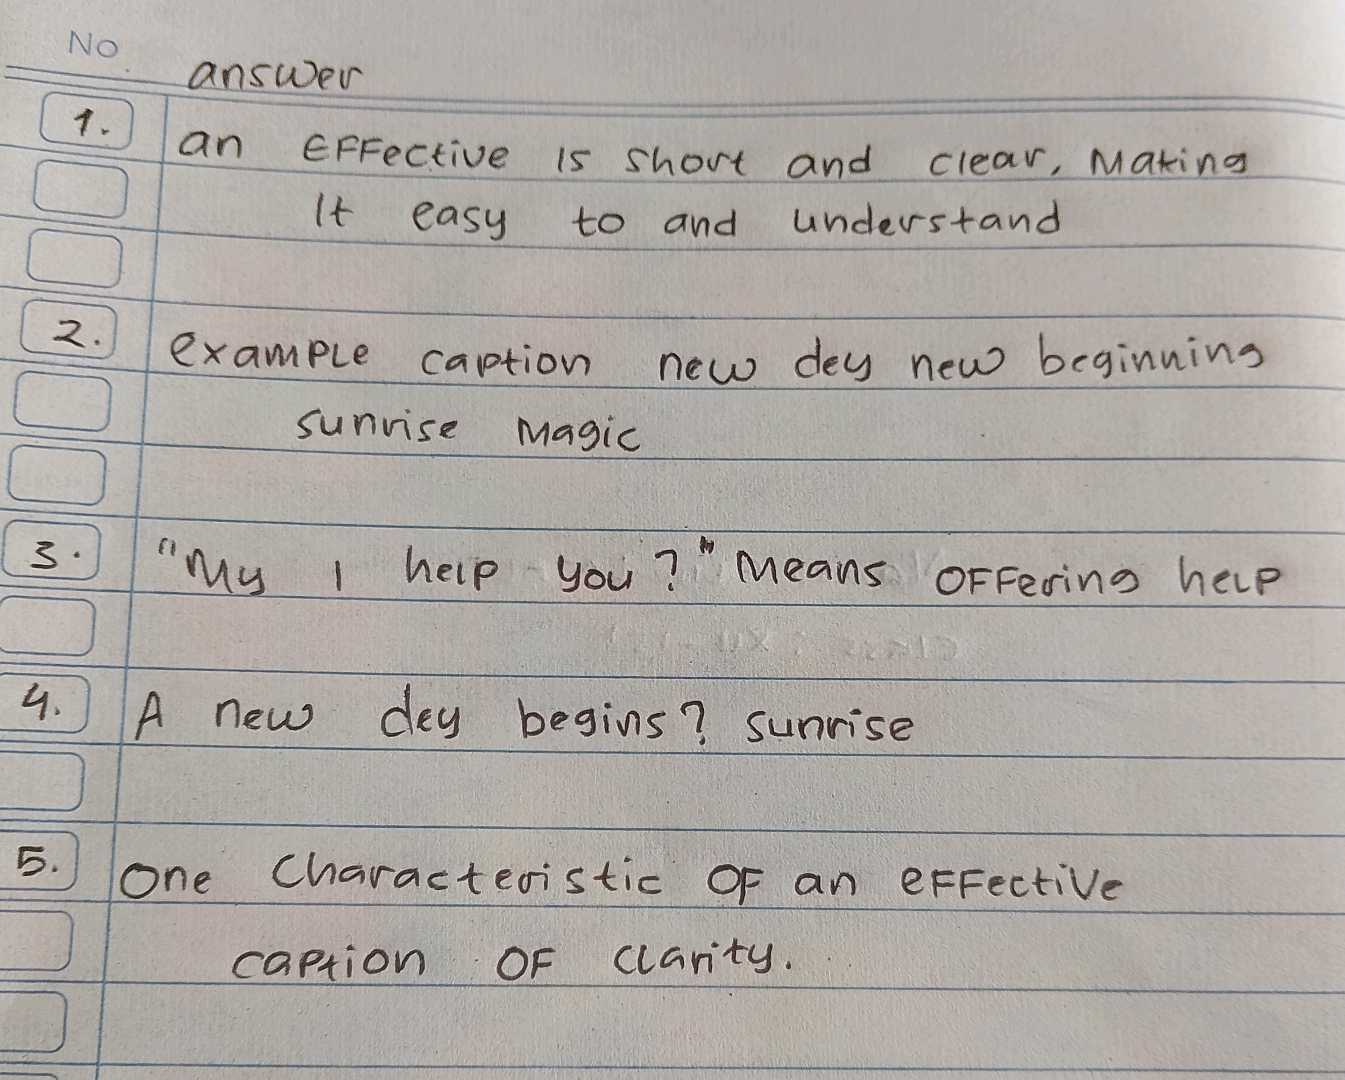 No.
answer
1. an EFFective is short and clear, Making
It easy to and understand
2. example caption new dey new beginning
sunrise Magic
3. "My I help you?" Means OFFering help
4. A new dey begins? sunrise
5. One Characteristic OF an eFFective
caption OF clarity.